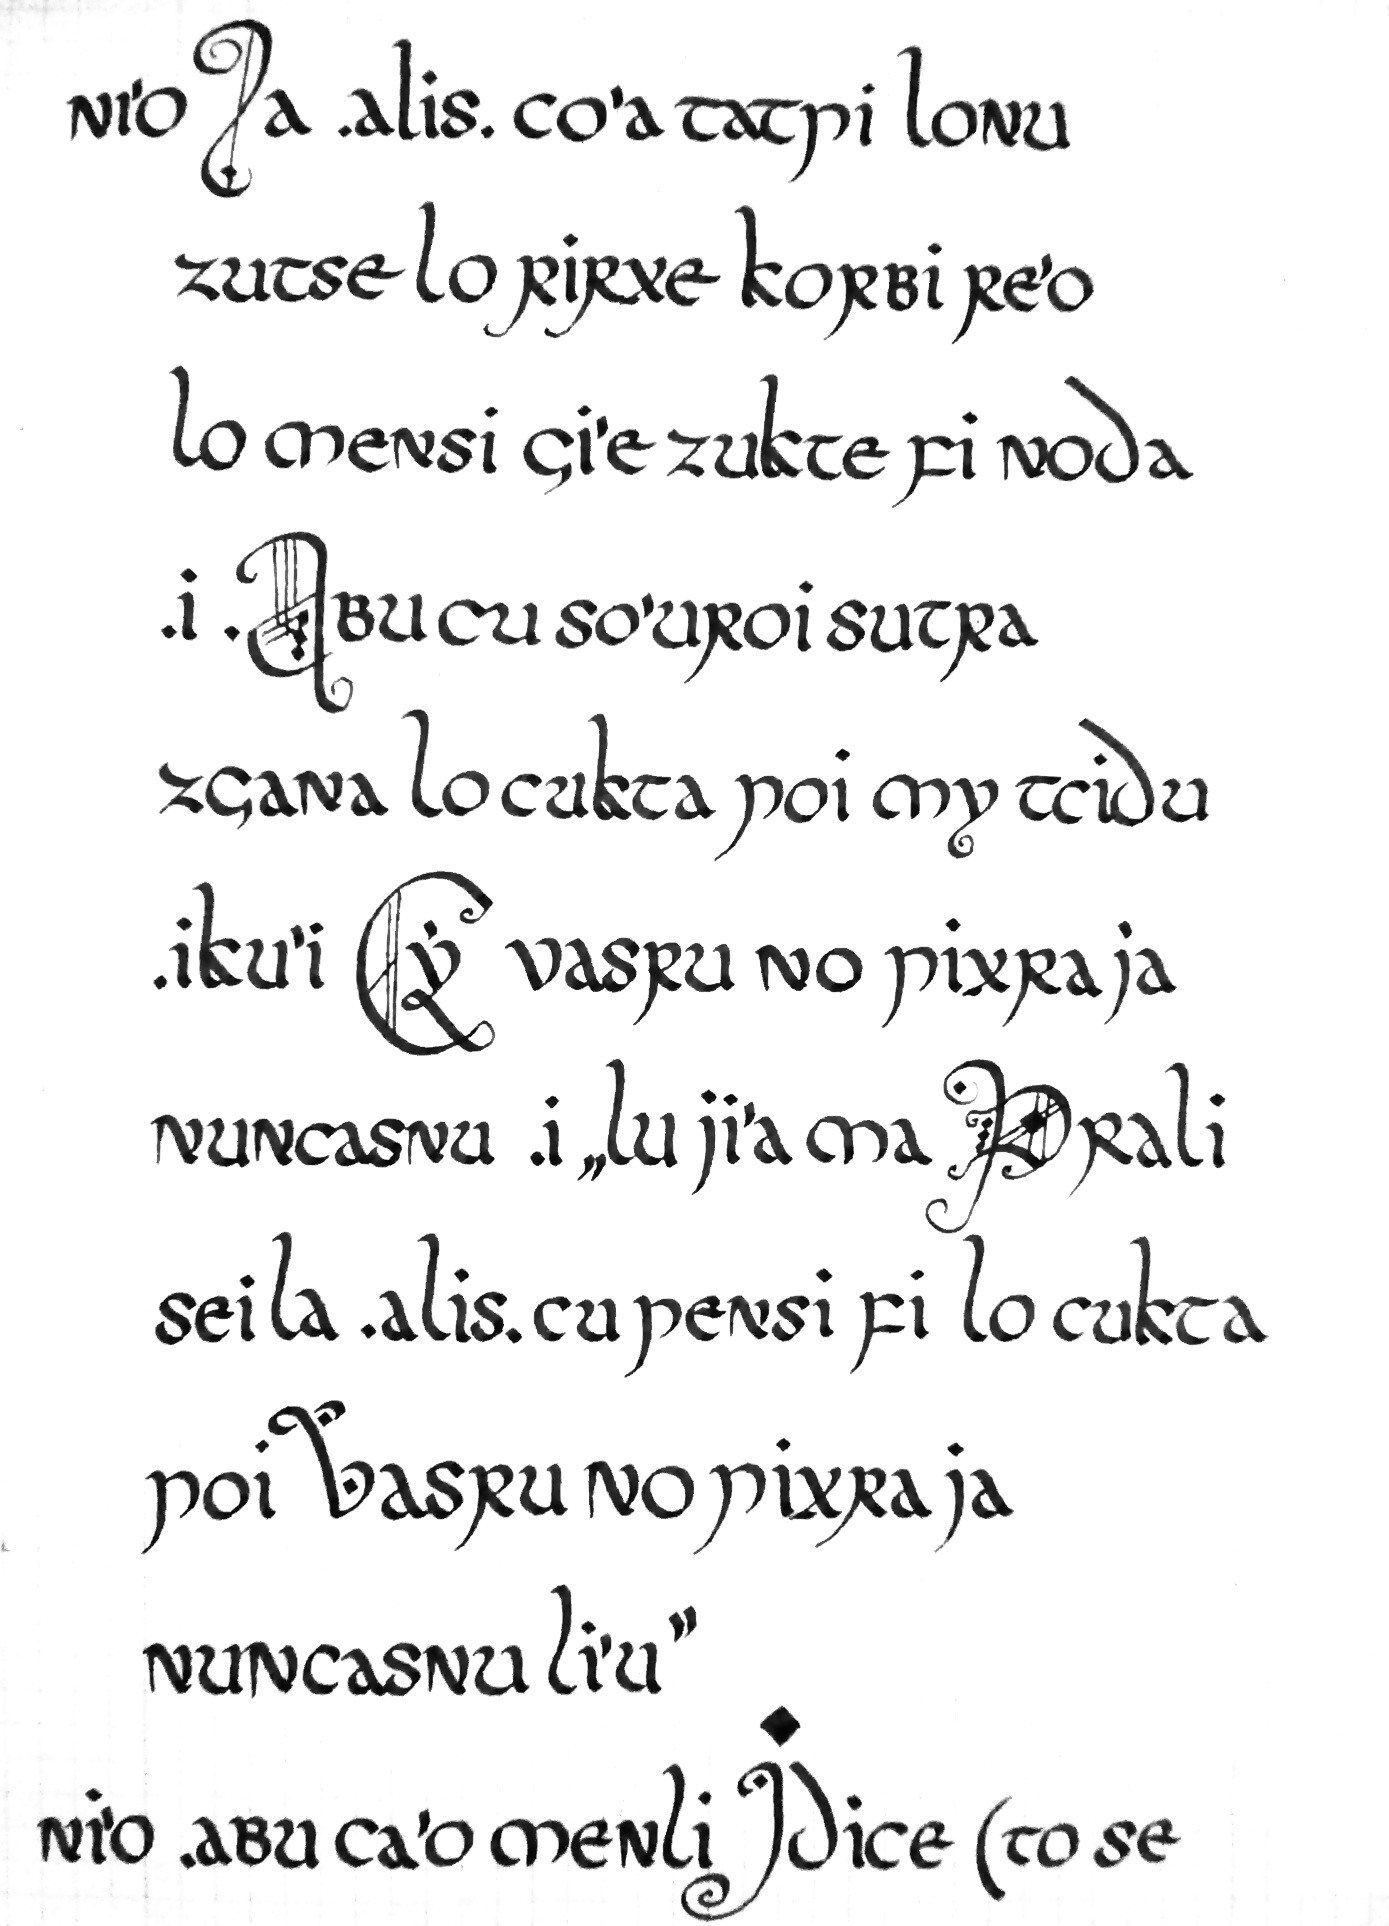 ni'o La .alis. co'a tatpi lonu
zutse lo rirxe korbi re'o
lo mensi gi'e zukte fi noda
.i .Abu cu so'uroi sutra
zgana lo cukta poi my tcidu
.iku'i Cy vasru no pixra ja
nuncasnu .i „lu ji'a ma Prali
sei la .alis. cu pensi fi lo cukta
poi Vasru no pixra ja
nuncasnu li'u”
ni'o .abu ca'o menli Jdice (to se